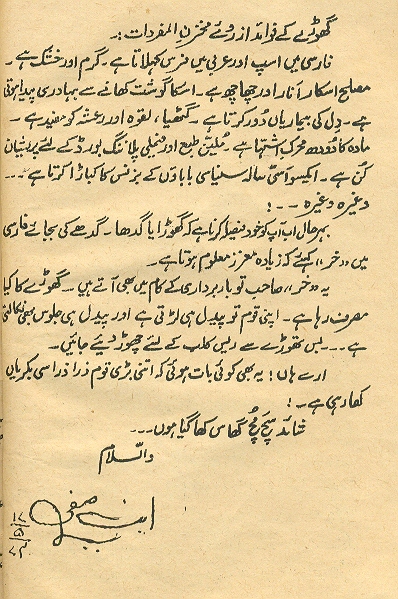 گھوڑے کے فوائد از روئے مخزن المفردات :-
فارسی میں اسپ اور عربی میں فرس کہلاتا ہے ۔ گرم اور خشک ہے ۔
مصلح اسکا انار اور چھاچھ ہے ۔ اسکا گوشت کھانے سے بہادری پیدا ہوتی
ہے ۔ دل کی بیماریاں دور کرتا ہے ۔ گٹھیا ، لقوہ اور رعشہ کو مفید ہے ۔
مادہ کا دودھ محرک اشتہا ہے ۔ ملیّن طبع اور فیملی پلاننگ بورڈ کے لئے پریشان
کُن ہے ۔ اکیسو اسّی سالہ سنیاسی باباؤں کے بزنس کا کباڑا کرتا ہے ۔۔۔
وغیرہ وغیرہ ۔۔۔!
بہرحال اب آپ کو خود فیصلہ کرنا ہے کہ گھوڑا یا گدھا ۔ گدھے کی بجائے فارسی
میں "خر" کہئے کہ زیادہ معزز معلوم ہوتا ہے ۔
یہ "خر" صاحب تو بار برداری کے کام میں بھی آتے ہیں ۔۔ گھوڑے کا کیا
مصرف رہا ہے ۔ اپنی قوم تو پیدل ہی لڑتی ہے اور پیدل ہی جلوس بھی نکالتی
ہے ۔۔۔ بس تھوڑے سے ریس کلب کے لئے چھوڑ دیئے جائیں ۔
ارے ہاں ! یہ بھی کوئی بات ہوئی کہ اتنی بڑی قوم ذرا ذرا سی بکریاں
کھا رہی ہے ۔!
شائد سچ مُچ گھاس کھا گیا ہوں ۔۔۔
والسّلام
ابن صفی
۱۲
۵
۷۳